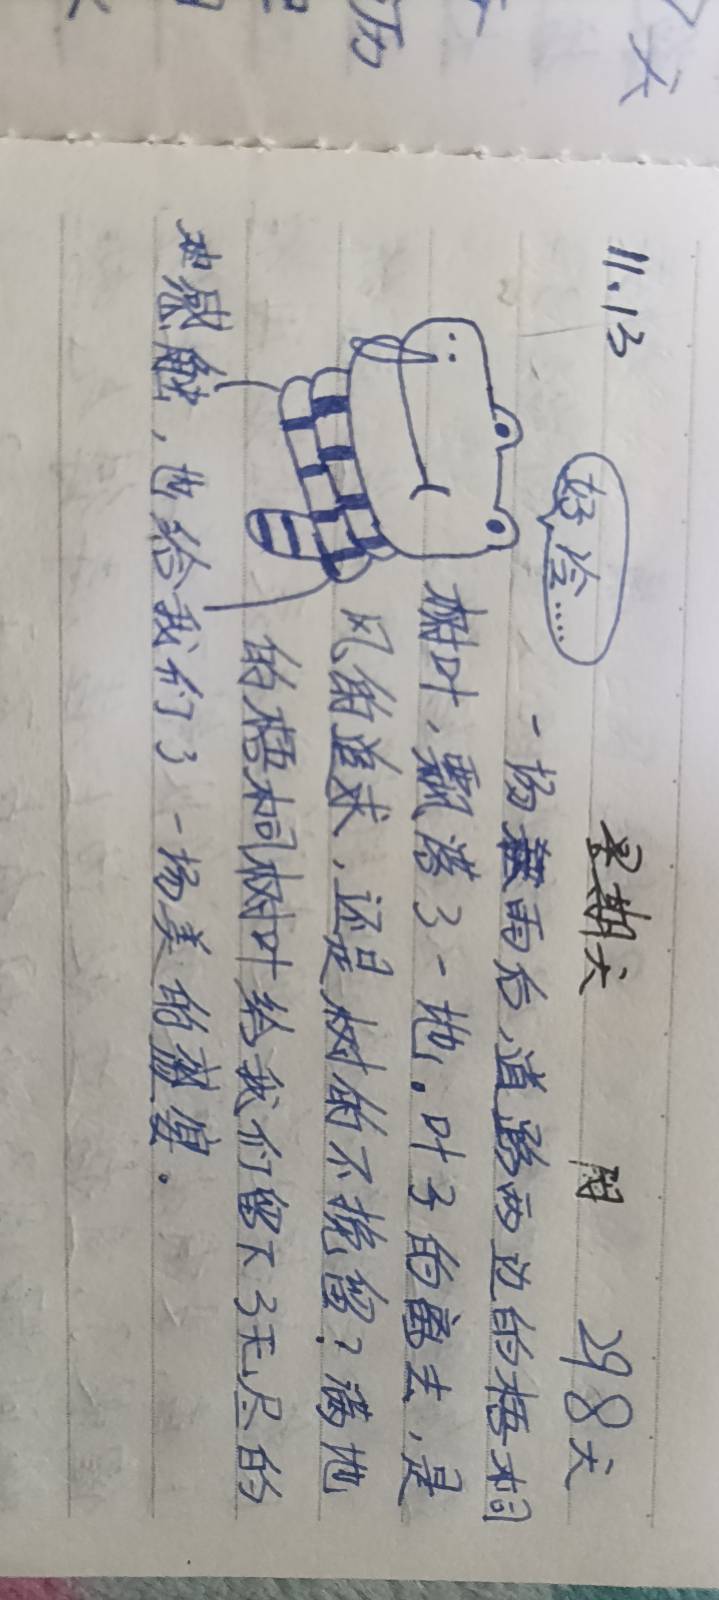 11.13 星期天 阴 298天
好冷……
一场寒雨后,道路两边的梧桐
树叶,飘落了一地。叶子的离去,是
风的追求,还是树的不挽留?满地
的梧桐树叶给我们留下了无尽的
秋感触,也给我们了一场美的盛宴。